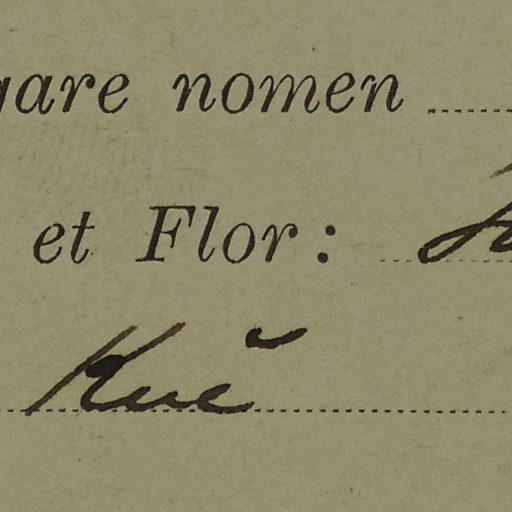 gare nomen
et Flor:
Kuč